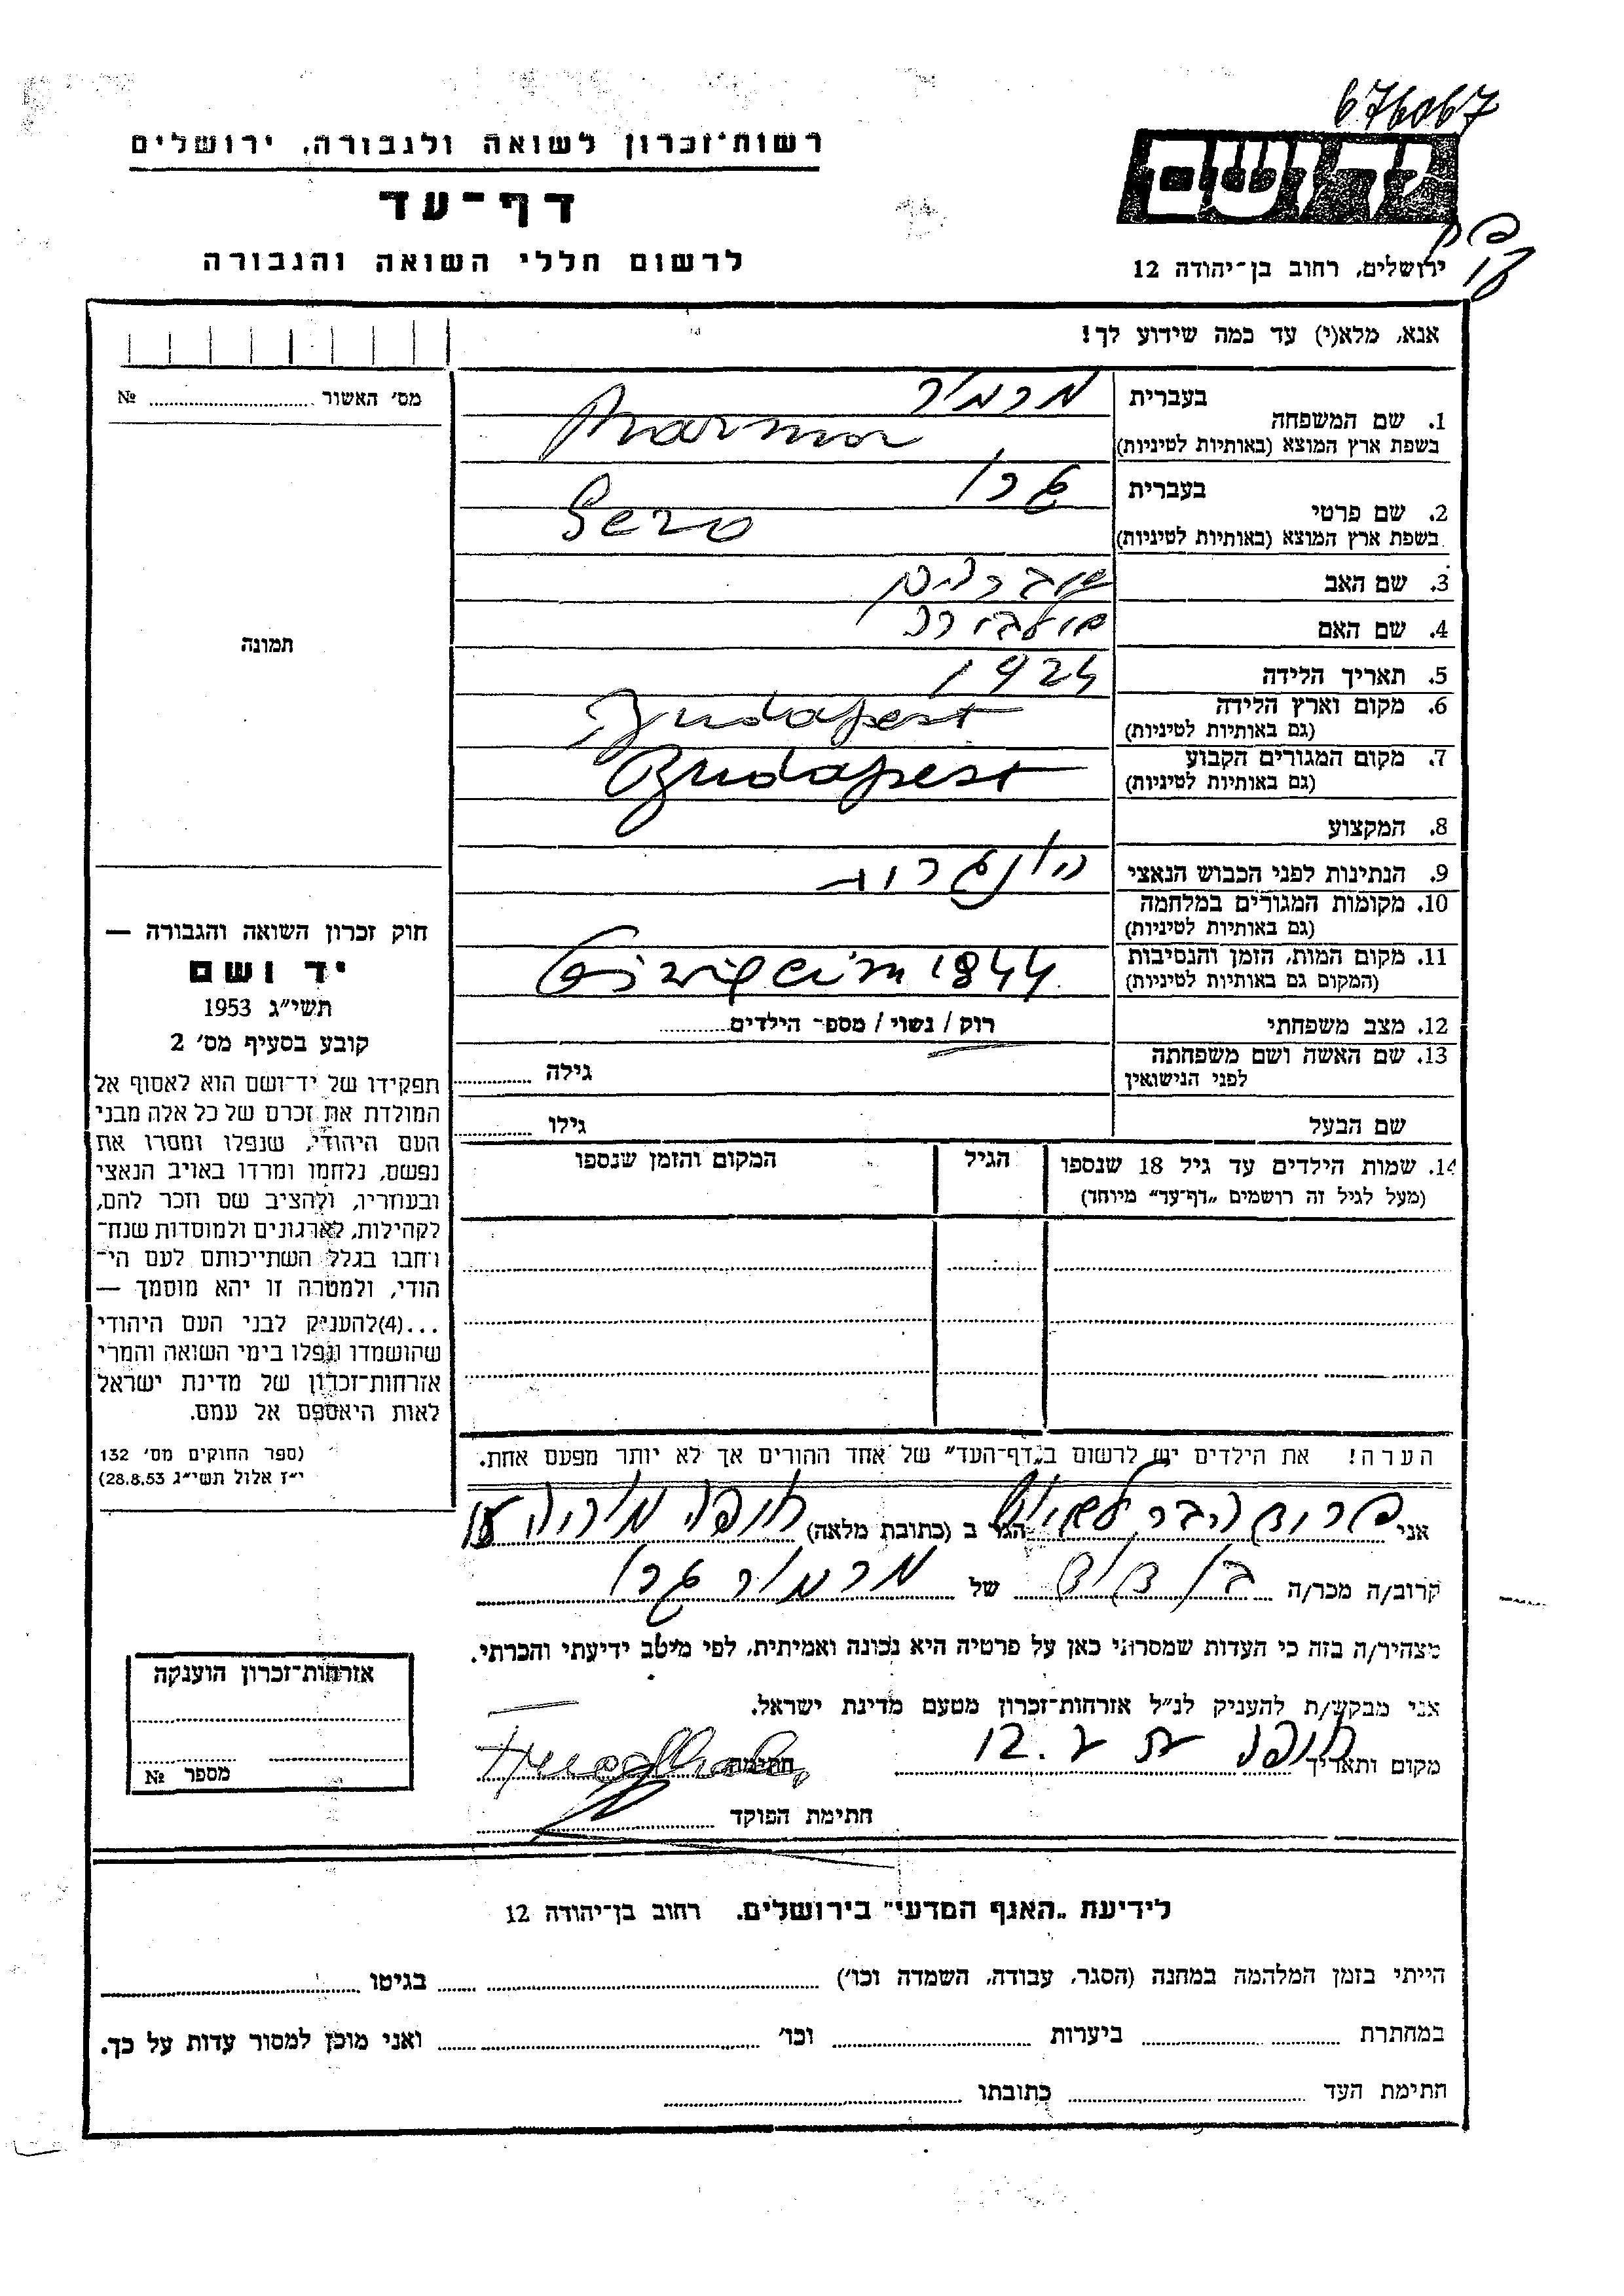 676067
רשות־זכרון לשואה ולגבורה, ירושלים
יד ושם
דף־עד
לרשום חללי השואה והגבורה
ירושלים, רחוב בן־יהודה 12
אנא, מלא(י) עד כמה שידוע לך!
מס' האשור № 
1. שם המשפחה
בעברית מרמור
בשפת ארץ המוצא (באותיות לטיניות) Marmor
2. שם פרטי
בעברית גרו
בשפת ארץ המוצא (באותיות לטיניות) Gero
3. שם האב
4. שם האם
5. תאריך הלידה 1924
6. מקום וארץ הלידה
(גם באותיות לטיניות) Budapest
7. מקום המגורים הקבוע
(גם באותיות לטיניות) Budapest
8. המקצוע
9. הנתינות לפני הכבוש הנאצי
10. מקומות המגורים במלחמה
(גם באותיות לטיניות)
11. מקום המות, הזמן והנסיבות
(המקום גם באותיות לטיניות) 1944
12. מצב משפחתי רוק / נשוי / מספר הילדים
13. שם האשה ושם משפחתה
לפני הנישואין גילה
שם הבעל גילו
14. שמות הילדים עד גיל 18 שנספו הגיל המקום והזמן שנספו
(מעל לגיל זה רושמים „דף־עד" מיוחד)
הערה! את הילדים יש לרשום ב„דף־העד" של אחד ההורים אך לא יותר מפעם אחת.
תמונה
חוק זכרון השואה והגבורה —
יד ושם
תשי"ג 1953
קובע בסעיף מס' 2
תפקידו של יד־ושם הוא לאסוף אל
המולדת את זכרם של כל אלה מבני
העם היהודי, שנפלו ומסרו את
נפשם, נלחמו ומרדו באויב הנאצי
ובעוזריו, ולהציב שם וזכר להם,
לקהילות, לארגונים ולמוסדות שנח־
רחבו בגלל השתייכותם לעם הי־
הודי, ולמטרה זו יהא מוסמך —
...(4)להעניק לבני העם היהודי
שהושמדו ונפלו בימי השואה והמרי
אזרחות־זכרון של מדינת ישראל
לאות היאספם אל עמם.
(ספר החוקים מס' 132
י"ז אלול תשי"ג 28.8.53)
אני הגר ב (כתובת מלאה) חיפה
קרוב/ה מכר/ה בן דוד של מרמור גרו
מצהיר/ה בזה כי העדות שמסרתי כאן על פרטיה היא נכונה ואמיתית, לפי מיטב ידיעתי והכרתי.
אני מבקש/ת להעניק לנ"ל אזרחות־זכרון מטעם מדינת ישראל.
מקום ותאריך חיפה חתימה
חתימת הפוקד
אזרחות־זכרון הוענקה
מספר №
לידיעת „האגף המדעי" בירושלים, רחוב בן־יהודה 12
הייתי בזמן המלחמה במחנה (הסגר, עבודה, השמדה וכו') בגיטו
במחתרת ביערות וכו' ואני מוכן למסור עדות על כך.
חתימת העד כתובתו